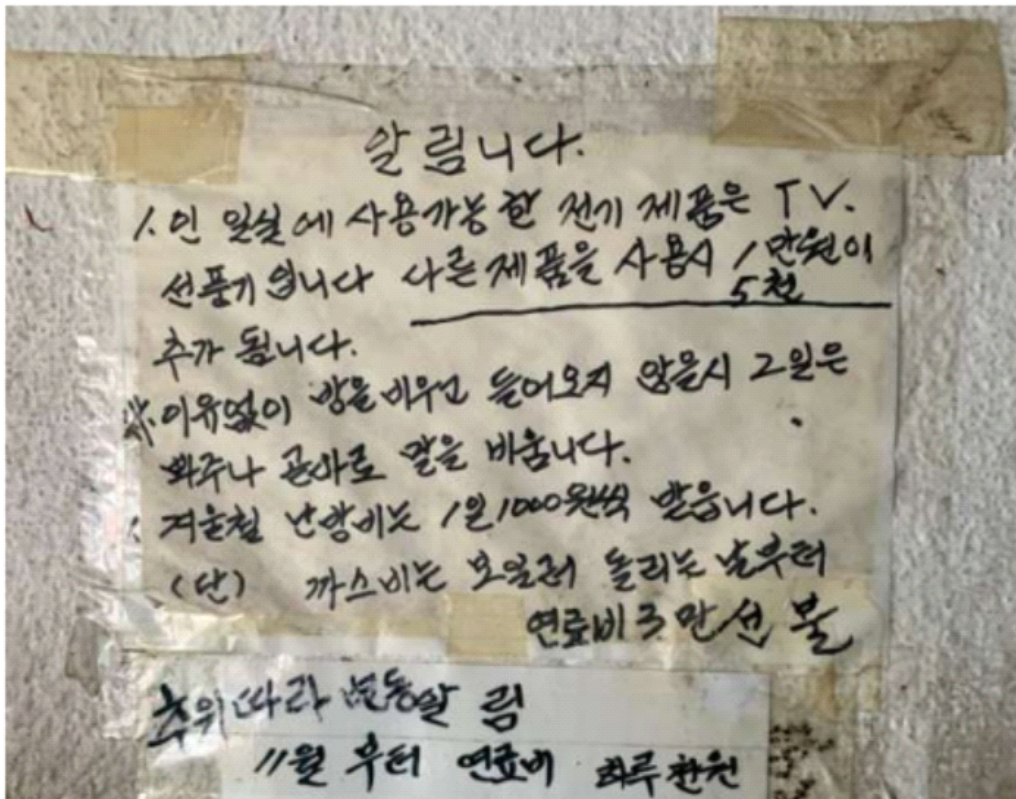 알림니다.
1.인 일실에 사용가능한 전기 제품은 TV.
선풍기 입니다 다른제품을 사용시 1만원이
5천
추가 됩니다.
이유없이 방을비우고 들어오지 않을시 2일은
봐주나 곧바로 말을 비움니다.
겨울철 난방비는 1일1000원씩 받읍니다.
(단) 까스비는 보일러 돌리는 날부터
연료비3만선불
추위따라 변동알림
11월 부터 연료비 하루 천원